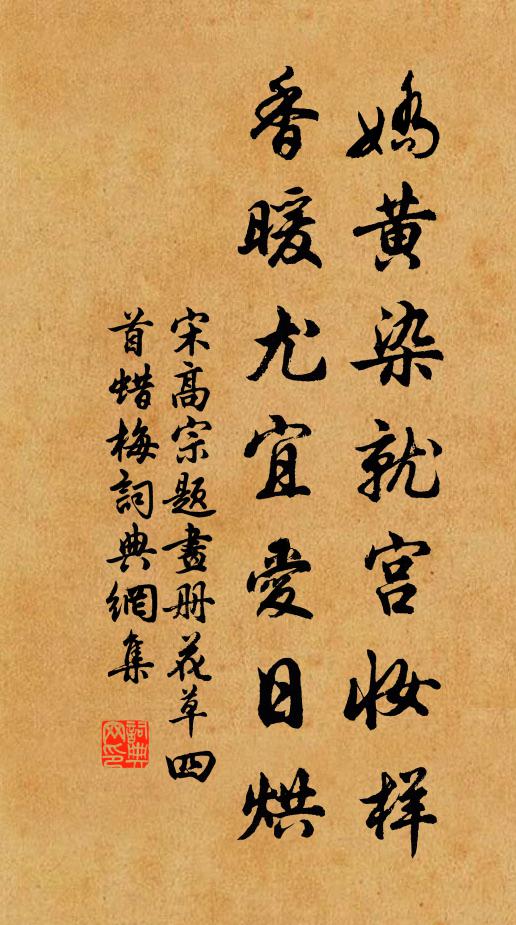 嬌黄染就宫妝样
香暖尤宜愛日烘
宋高宗题畫册花草四
首蜡梅詞典網集
詞典
网印